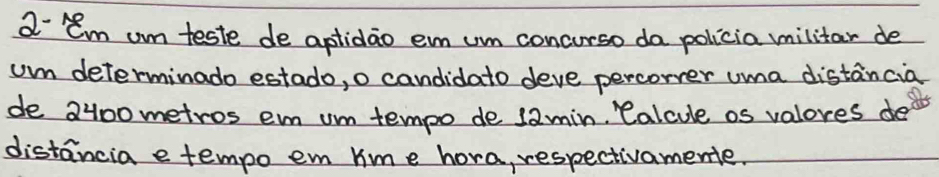 2- Em um teste de aptidão em um concurso da polícia militar de
um determinado estado, o candidato deve percorrer uma distância
de 2400 metros em um tempo de 12min. Calcule os valores de
distância e tempo em Km e hora, respectivamente.